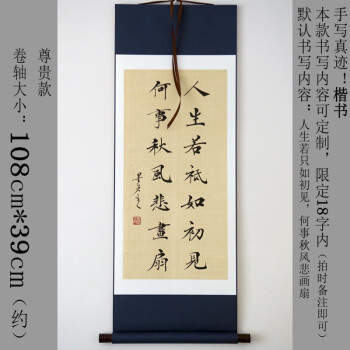 手写真迹！楷书
本款书写内容可定制，限定18字内（拍时备注即可）
默认书写内容：人生若只如初见，何事秋风悲画扇
人生若祇如初見
何事秋風悲畫扇
尊贵款
卷轴大小：108cm*39cm（约）